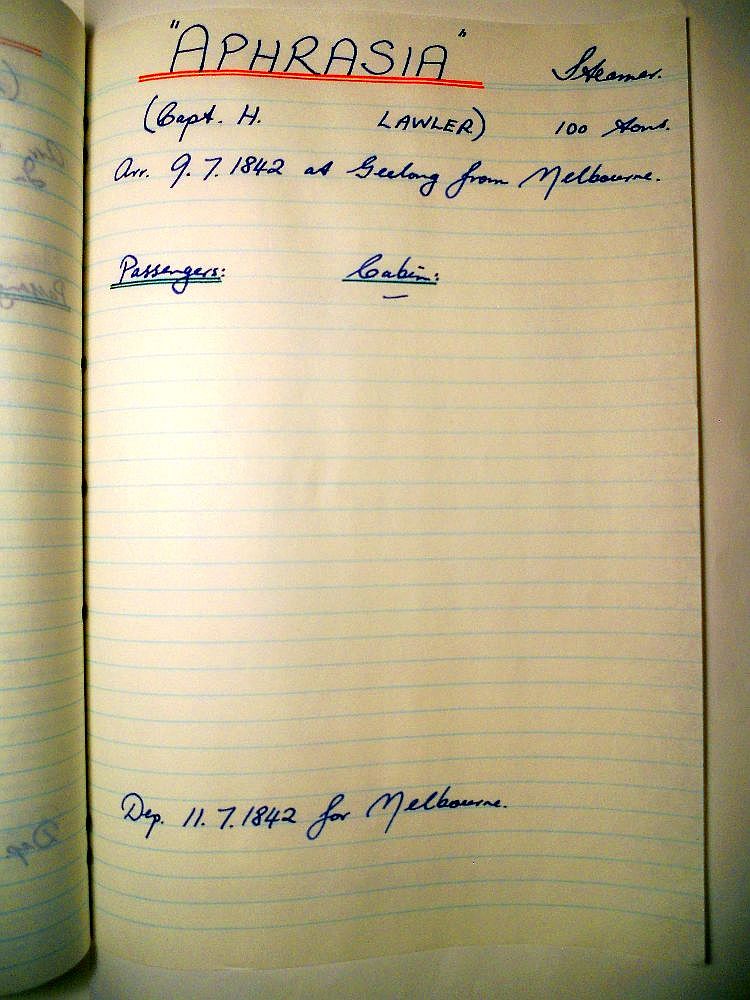 "APHRASIA" Steamer.
(Capt. H. LAWLER) 100 tons.
Arr. 9.7.1842 at Geelong from Melbourne.
Passengers: Cabin:
—
Dep. 11.7.1842 for Melbourne.
Dep.